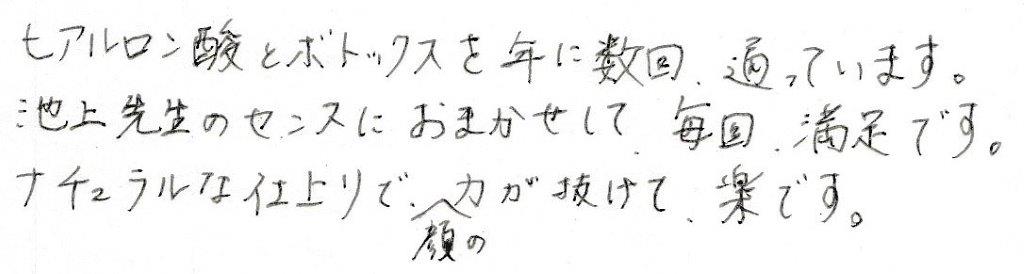 ヒアルロン酸とボトックスを年に数回、通っています。
池上先生のセンスにおまかせして、毎回、満足です。
ナチュラルな仕上りで、顔の力が抜けて、楽です。